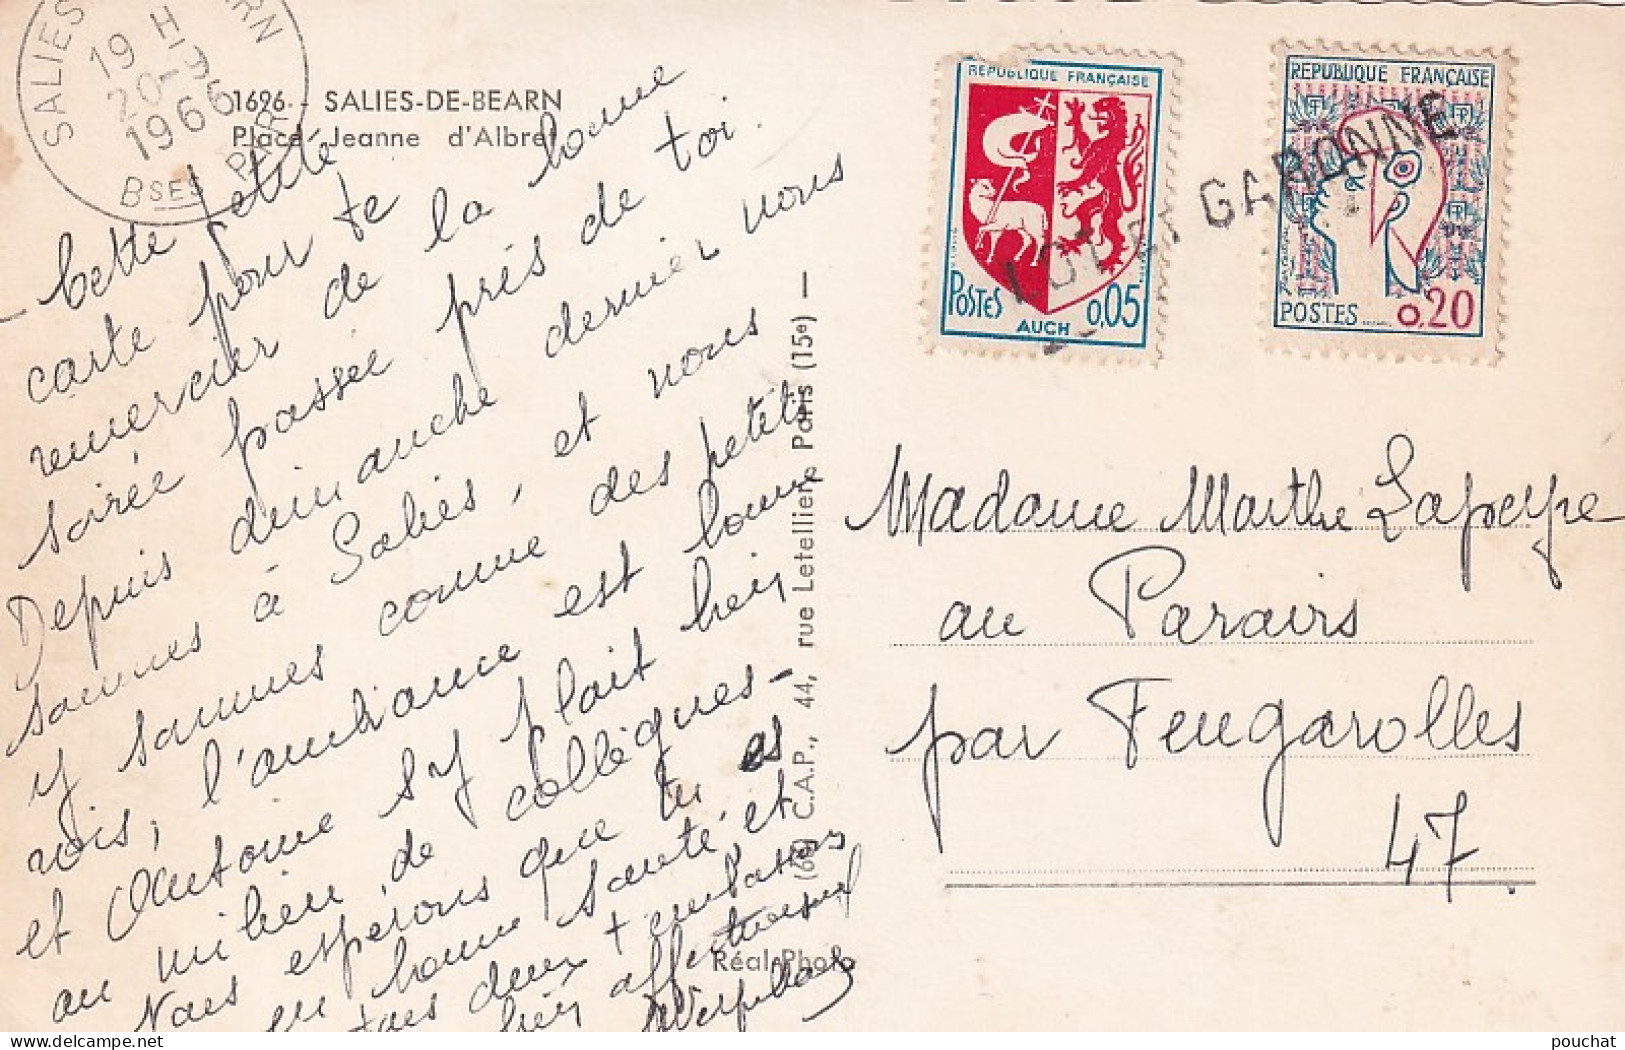 SALIES BEARN
19 H
20-9
1966
BSES PYR
1696 - SALIES-DE-BEARN
Place Jeanne d'Albret
- Cette petite
carte pour te
remercier de la bonne
soirée passée près de toi.
Depuis dimanche dernier nous
sommes à Salies, et nous
y sommes comme des petits
rois, l'ambiance est bonne
et Antoine s'y plait bien
au milieu de collègues -
Nous espérons que tu es
en bonne santé, et
deux t'embrassons
bien affectueusement
(66) C.A.P., 44, rue Letellier, Paris (15e) -
Réal-Photo
REPUBLIQUE FRANÇAISE
POSTES
0,05
AUCH
REPUBLIQUE FRANÇAISE
POSTES
0,20
LOT ET GARONNE
Madame Marthe Lapeyre
au Parairs
par Feugarolles
47
pouchat